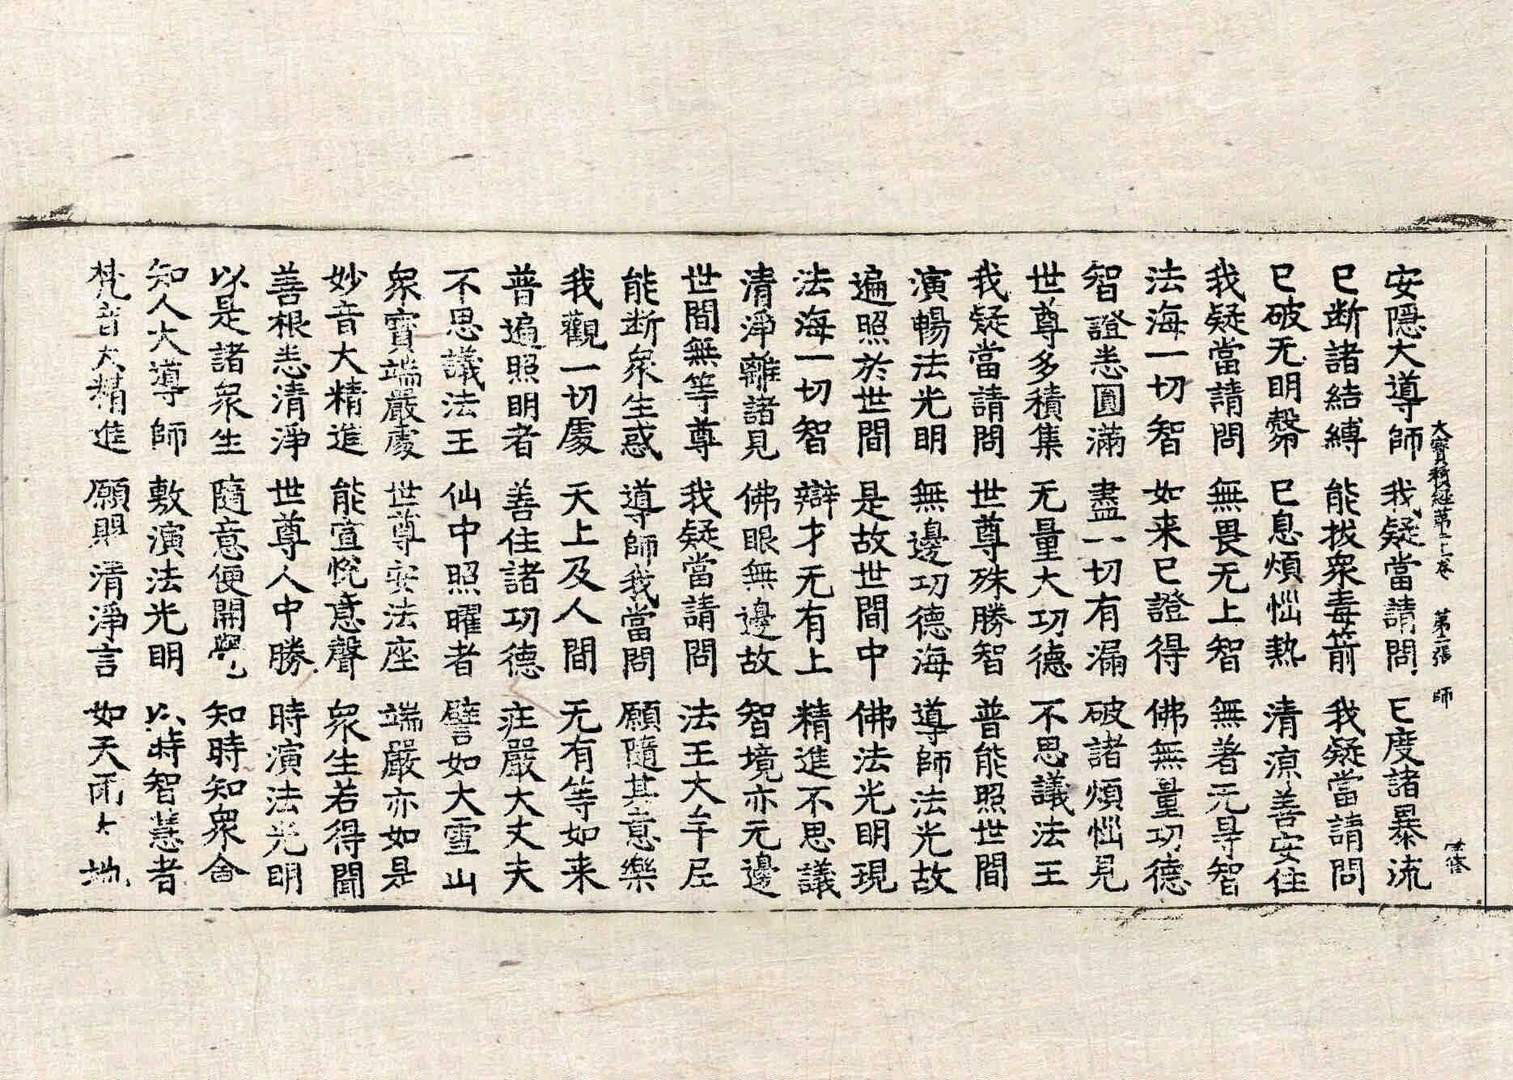 大寶積經第二十卷 第二張 師
安隱大導師 我疑當請問 已度諸暴流
已斷諸結縛 能拔衆毒箭 我疑當請問
已破无明㲉 已息煩惱熱 清涼善安住
我疑當請問 無畏无上智 無著无㝵智
法海一切智 如来已證得 佛無量功德
智證悉圓滿 盡一切有漏 破諸煩惱見
世尊多積集 无量大功德 不思議法王
我疑當請問 世尊殊勝智 普能照世間
演暢法光明 無邊功德海 導師法光故
遍照於世間 是故世間中 佛法光明現
法海一切智 辯才无有上 精進不思議
清淨離諸見 佛眼無邊故 智境亦无邊
世間無等尊 我疑當請問 法王大牟尼
能断衆生惑 導師我當問 願隨其意樂
我觀一切處 天上及人間 无有等如来
普遍照明者 善住諸功德 莊嚴大丈夫
不思議法王 仙中照曜者 譬如大雪山
衆寶端嚴處 世尊安法座 端嚴亦如是
妙音大精進 能宣悅意聲 衆生若得聞
善根悉清淨 世尊人中勝 時演法光明
以是諸衆生 隨意便開覺 知時知衆會
知人大導師 敷演法光明 以時智慧者
梵音大精進 願賜清淨言 如天雨大地